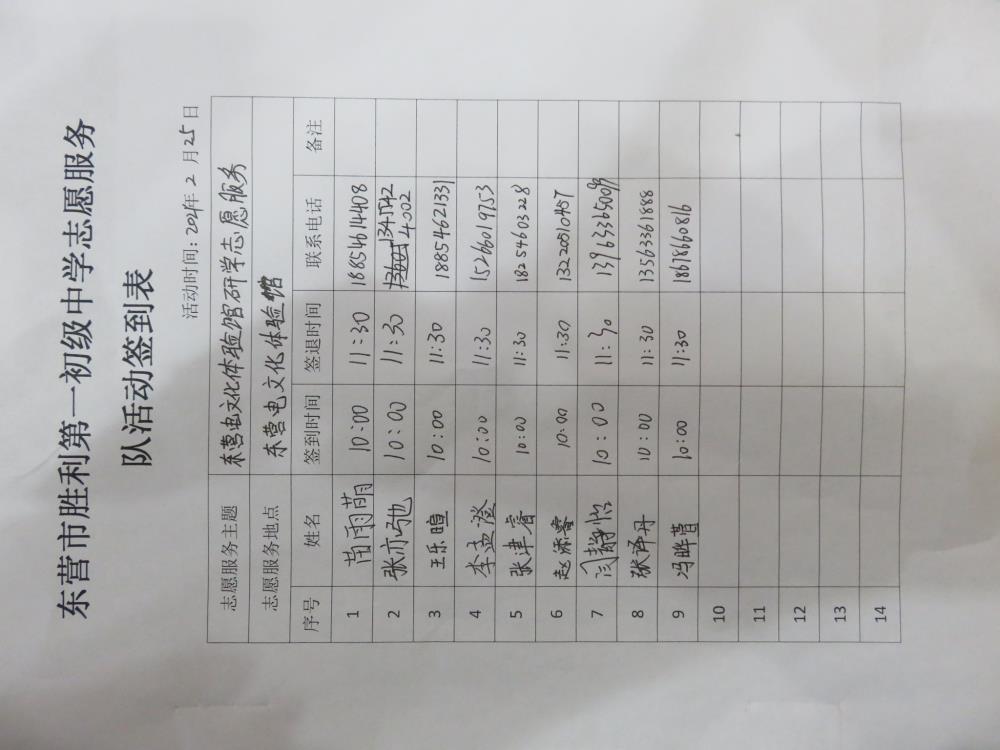 东营市胜利第一初级中学志愿服务
队活动签到表
活动时间：2024年 2 月 25 日
志愿服务主题 东营电文化体验馆研学志愿服务
志愿服务地点 东营电文化体验馆
序号 姓名 签到时间 签退时间 联系电话 备注
1 苗雨萌 10:00 11:30 18854614408
2 张亦驰 10:00 11:30
3 王乐暄 10:00 11:30 18854621331
4 李孟澄 10:00 11:30 15266019753
5 张聿睿 10:00 11:30 18254603228
6 赵添睿 10:00 11:30 13220510457
7 闫静怡 10:00 11:30
8 张译丹 10:00 11:30 13563361888
9 冯晔萱 10:00 11:30 18678660816
10
11
12
13
14